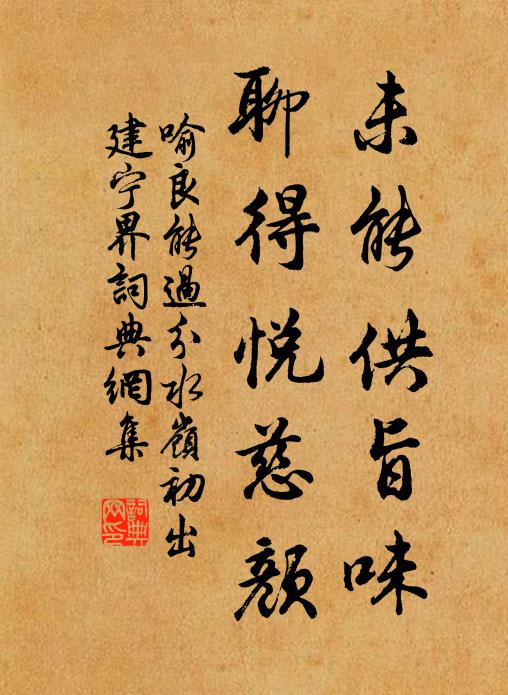 未能供旨味
聊得悦慈颜
喻良能過分水嶺初出
建宁界詞典網集
詞典网印